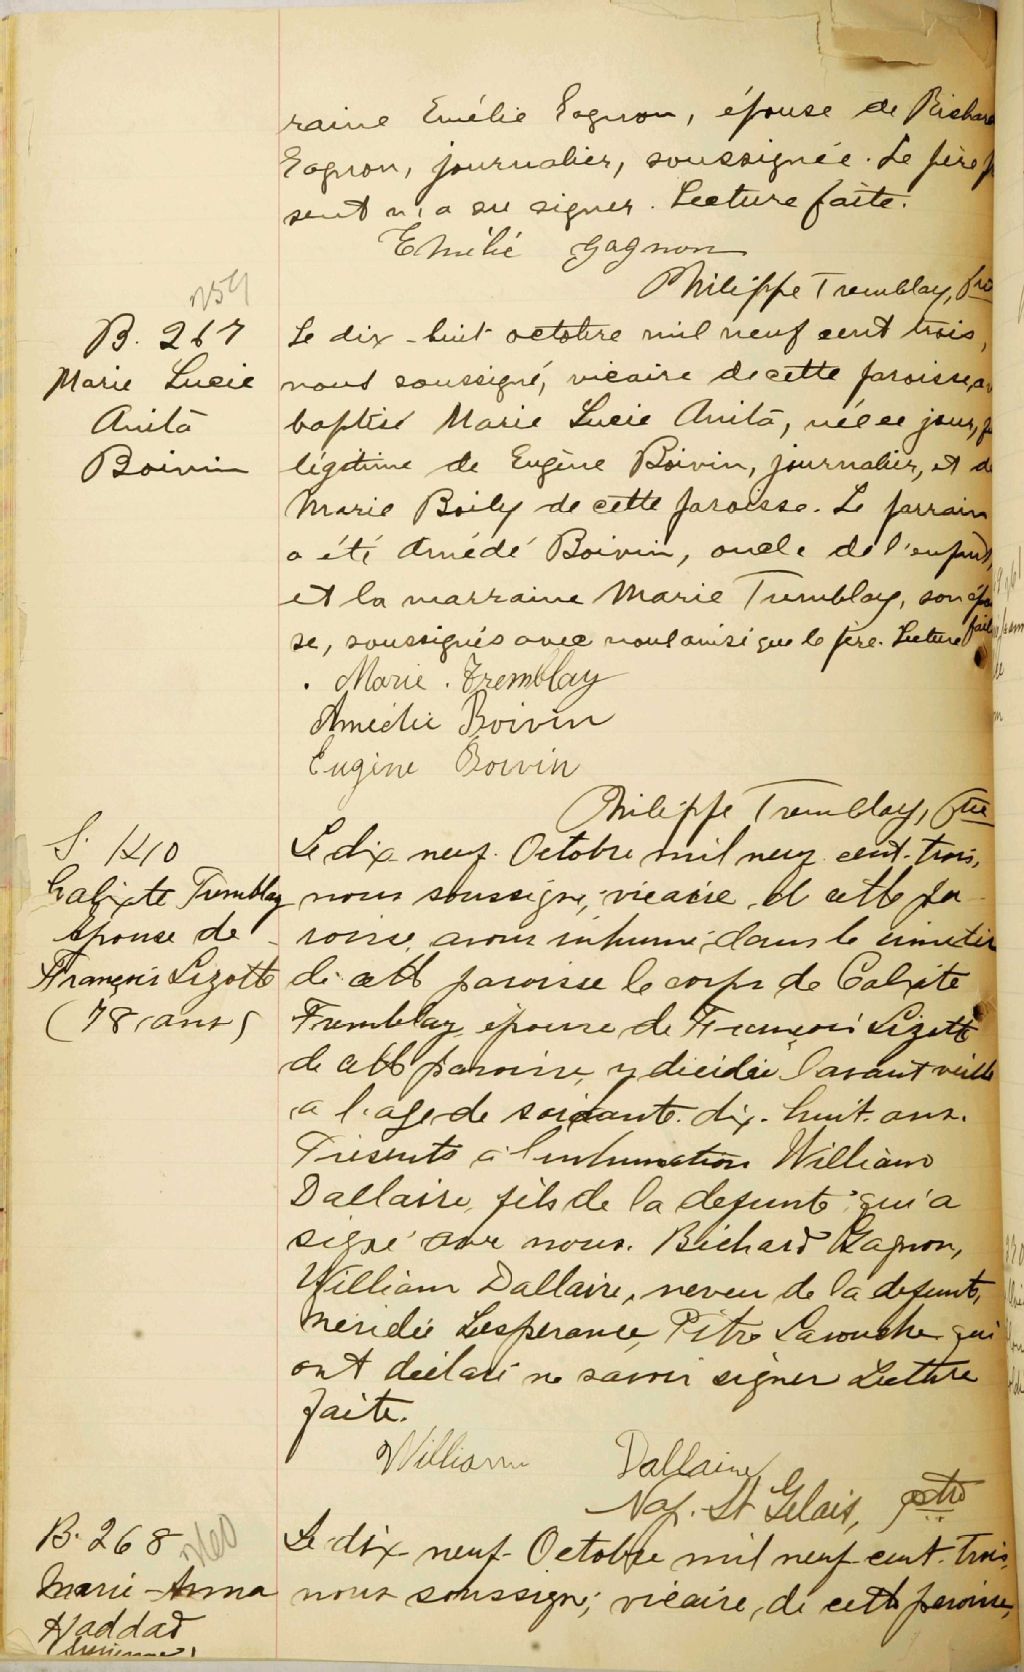 raine Emélie Gagnon, épouse de Richard
Gagnon, journalier, soussignée. Le père
sent n'a su signer. Lecture faite.
Emélié Gagnon
Philippe Tremblay, ptre
B. 267
Marie Lucie
Anita
Boivin
Le dix-huit octobre mil neuf cent trois,
nous soussigné, vicaire de cette paroisse, av
baptisé Marie Lucie Anita, née ce jour, fi
légitime de Eugène Boivin, journalier, et de
Marie Boily de cette paroisse. Le parrain
a été Amédé Boivin, oncle de l'enfant,
et la marraine Marie Tremblay, son épou
se, soussignés avec nous ainsi que le père. Lecture faite
Marie Tremblay
Amédée Boivin
Eugène Boivin
Philippe Tremblay, Ptre
S. 140
Calixte Tremblay
épouse de
François Lizotte
(78 ans)
Le dix neuf Octobre mil neuf cent trois,
nous soussigné, vicaire de cette pa
roisse, avons inhumé dans le cimetiè
de cette paroisse le corps de Calixte
Tremblay épouse de François Lizotte
de cette paroisse, y décédée l'avant veille
a l'age de soixante-dix-huit ans.
Présents à l'inhumation William
Dallaire, fils de la defunte qui a
signé avec nous. Richard Gagnon,
William Dallaire, neveu de la defunte,
Lesperance, Pitre Larouche qui
ont déclaré ne savoir signer Lecture
faite.
William Dallaire
Nap. St Gelais, ptre
B. 268
Marie-Anna
Haddad
Le dix-neuf Octobre mil neuf cent trois,
nous soussigné, vicaire, de cette paroisse,